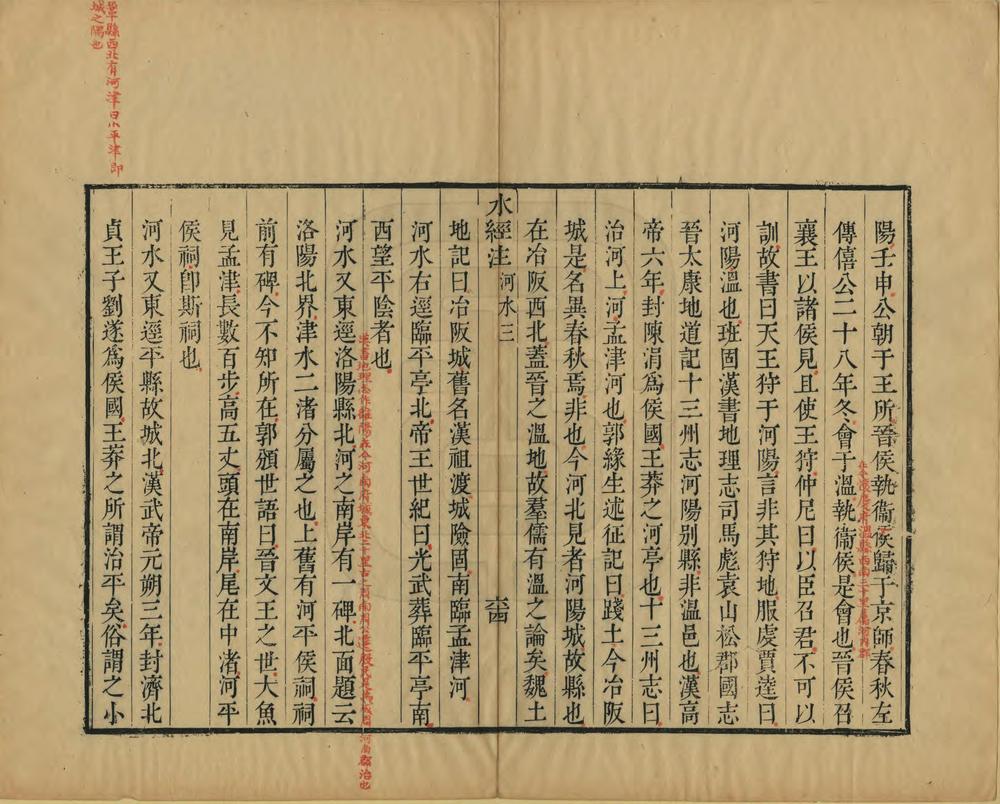 陽壬申公朝于王所晉侯執衞侯歸于京師春秋左
傳僖公二十八年冬會于溫執衞侯是會也晉侯召
襄王以諸侯見且使王狩仲尼曰以臣召君不可以
訓故書曰天王狩于河陽言非其狩地服虔賈逵曰
河陽溫也班固漢書地理志司馬彪袁山松郡國志
晉太康地道記十三州志河陽別縣非溫邑也漢高
帝六年封陳涓爲侯國王莽之河亭也十三州志曰
治河上河孟津河也郭緣生述征記曰踐土今冶阪
城是名異春秋焉非也今河北見者河陽城故縣也
在冶阪西北蓋晉之溫地故羣儒有溫之論矣魏土
水經注 河水三
地記曰冶阪城舊名漢祖渡城險固南臨孟津河
河水右逕臨平亭北帝王世紀曰光武葬臨平亭南
西望平陰者也
河水又東逕洛陽縣北河之南岸有一碑北面題云
漢書地理志作雒陽在今河南府城東北二十里
洛陽北界津水二渚分屬之也上舊有河平侯祠祠
前有碑今不知所在郭頒世語曰晉文王之世大魚
見孟津長數百步高五丈頭在南岸尾在中渚河平
侯祠卽斯祠也
河水又東逕平縣故城北漢武帝元朔三年封濟北
貞王子劉遂爲侯國王莽之所謂治平矣俗謂之小
縣西北有河津曰小平津即
城之隅也